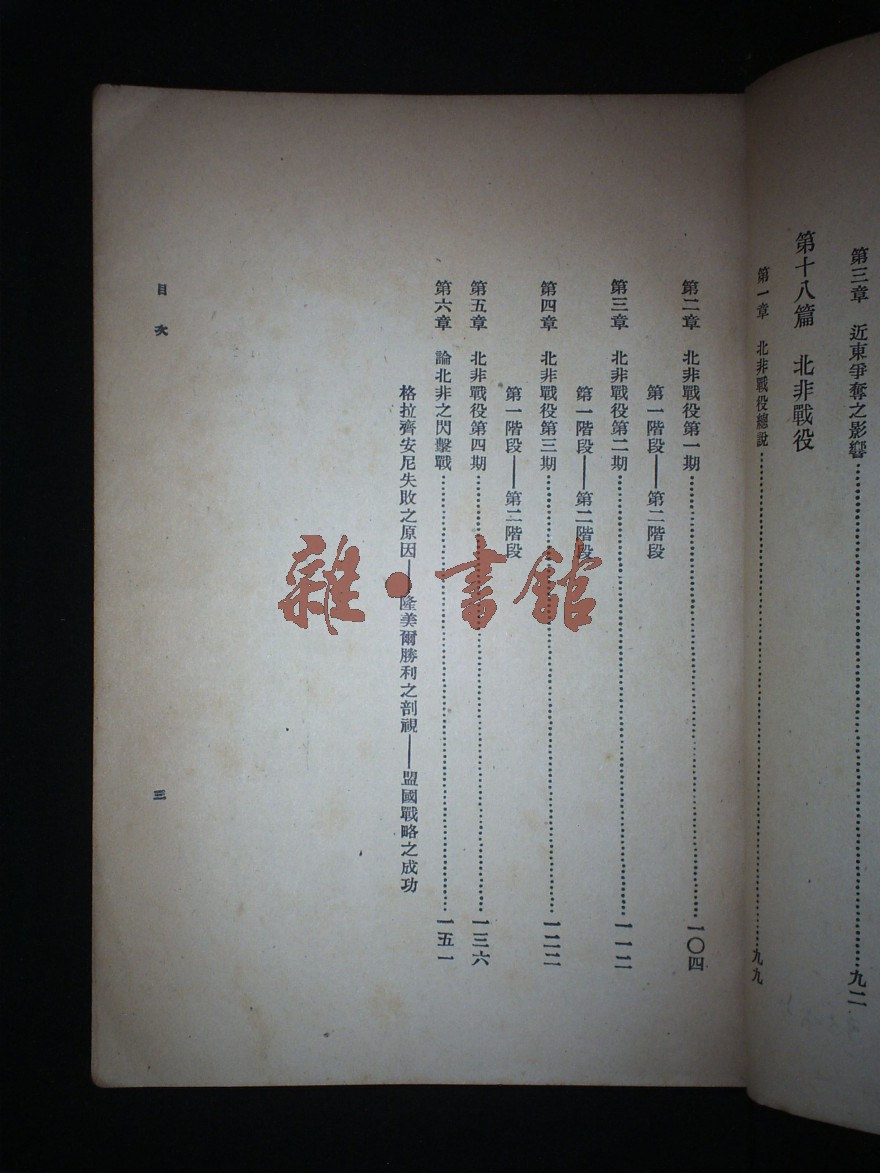 第三章　近東爭奪之影響……九二
第十八篇　北非戰役
第一章　北非戰役總說……九九
第二章　北非戰役第一期……一〇四
第一階段——第二階段
第三章　北非戰役第二期……一一二
第一階段——第二階段
第四章　北非戰役第三期……一二二
第一階段——第二階段
第五章　北非戰役第四期……一三六
第六章　論北非之閃擊戰……一五一
格拉齊安尼失敗之原因——隆美爾勝利之剖視——盟國戰略之成功
目次
三
雜·書館